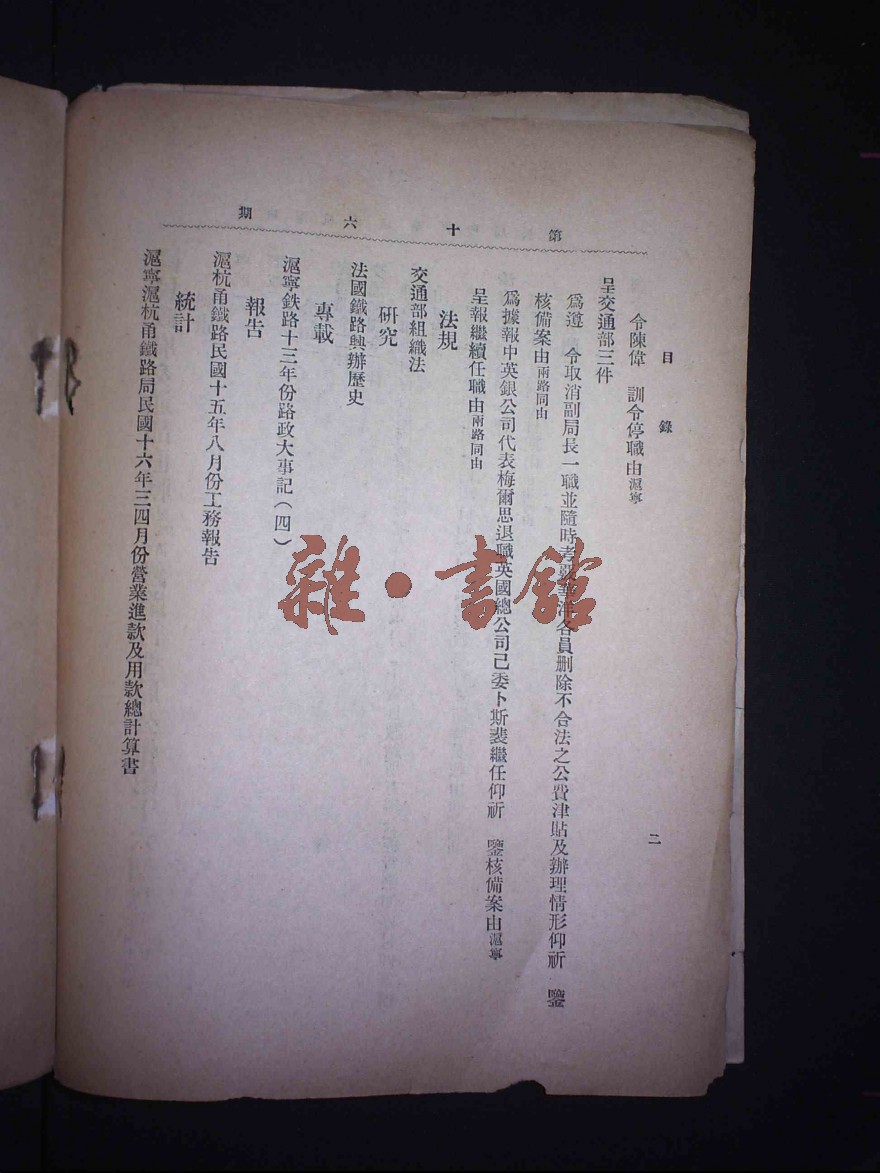 第十六期
目錄
二
令陳偉 訓令停職由滬寧
呈交通部三件
爲遵 令取消副局長一職並隨時考覈華洋各員刪除不合法之公費津貼及辦理情形仰祈 鑒
核備案由兩路同由
爲據報中英銀公司代表梅爾思退職英國總公司已委卜斯裴繼任仰祈 鑒核備案由滬寧
呈報繼續任職由兩路同由
法規
交通部組織法
研究
法國鐵路興辦歷史
專載
滬寧鉄路十三年份路政大事記(四)
報告
滬杭甬鐵路民國十五年八月份工務報告
統計
滬寧滬杭甬鐵路局民國十六年三四月份營業進款及用款總計算書
雜·書館